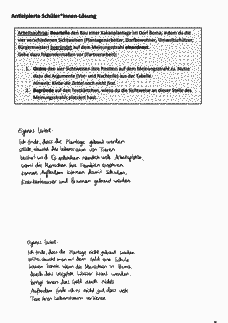 Antizipierte Schüler*innen-Lösung
Arbeitsauftrag: Beurteile den Bau einer Kakaoplantage im Dorf Boma, indem du die
vier verschiedenen Sichtweisen (Plantagenarbeiter, Dorfbewohner, Umweltschützer,
Bürgermeister) begründet auf dem Meinungsstrahl einordnest.
Gehe dazu folgendermaßen vor (Partnerarbeit):
1. Ordne den vier Sichtweisen eine Position auf dem Meinungsstrahl zu. Nutze
dazu die Argumente (Vor- und Nachteile) aus der Tabelle.
Hinweis: Klebe die Zettel noch nicht fest.
2. Begründe auf den Textkärtchen, wieso du die Sichtweise an dieser Stelle des
Meinungsstrahls platziert hast.
Eigenes Urteil:
Ich finde, dass die Plantage gebaut werden
sollte, obwohl die Lebensraum von Tieren
Es entstehen nämlich viele Arbeitsplätze,
womit die Menschen ihre Familien ernähren
können. Außerdem können damit Schulen,
Krankenhäuser und Brunnen gebaut werden.
Eigenes Urteil:
Ich finde, dass die Plantage nicht gebaut werden
sollte, obwohl man mit dem Geld eine Schule
bauen könnte. Wenn die Menschen in Boma
durch das vergiftete Wasser krank werden,
bringt ihnen das Geld auch nichts.
Außerdem finde ich es nicht gut, dass viele
Tiere ihren Lebensraum verlieren.